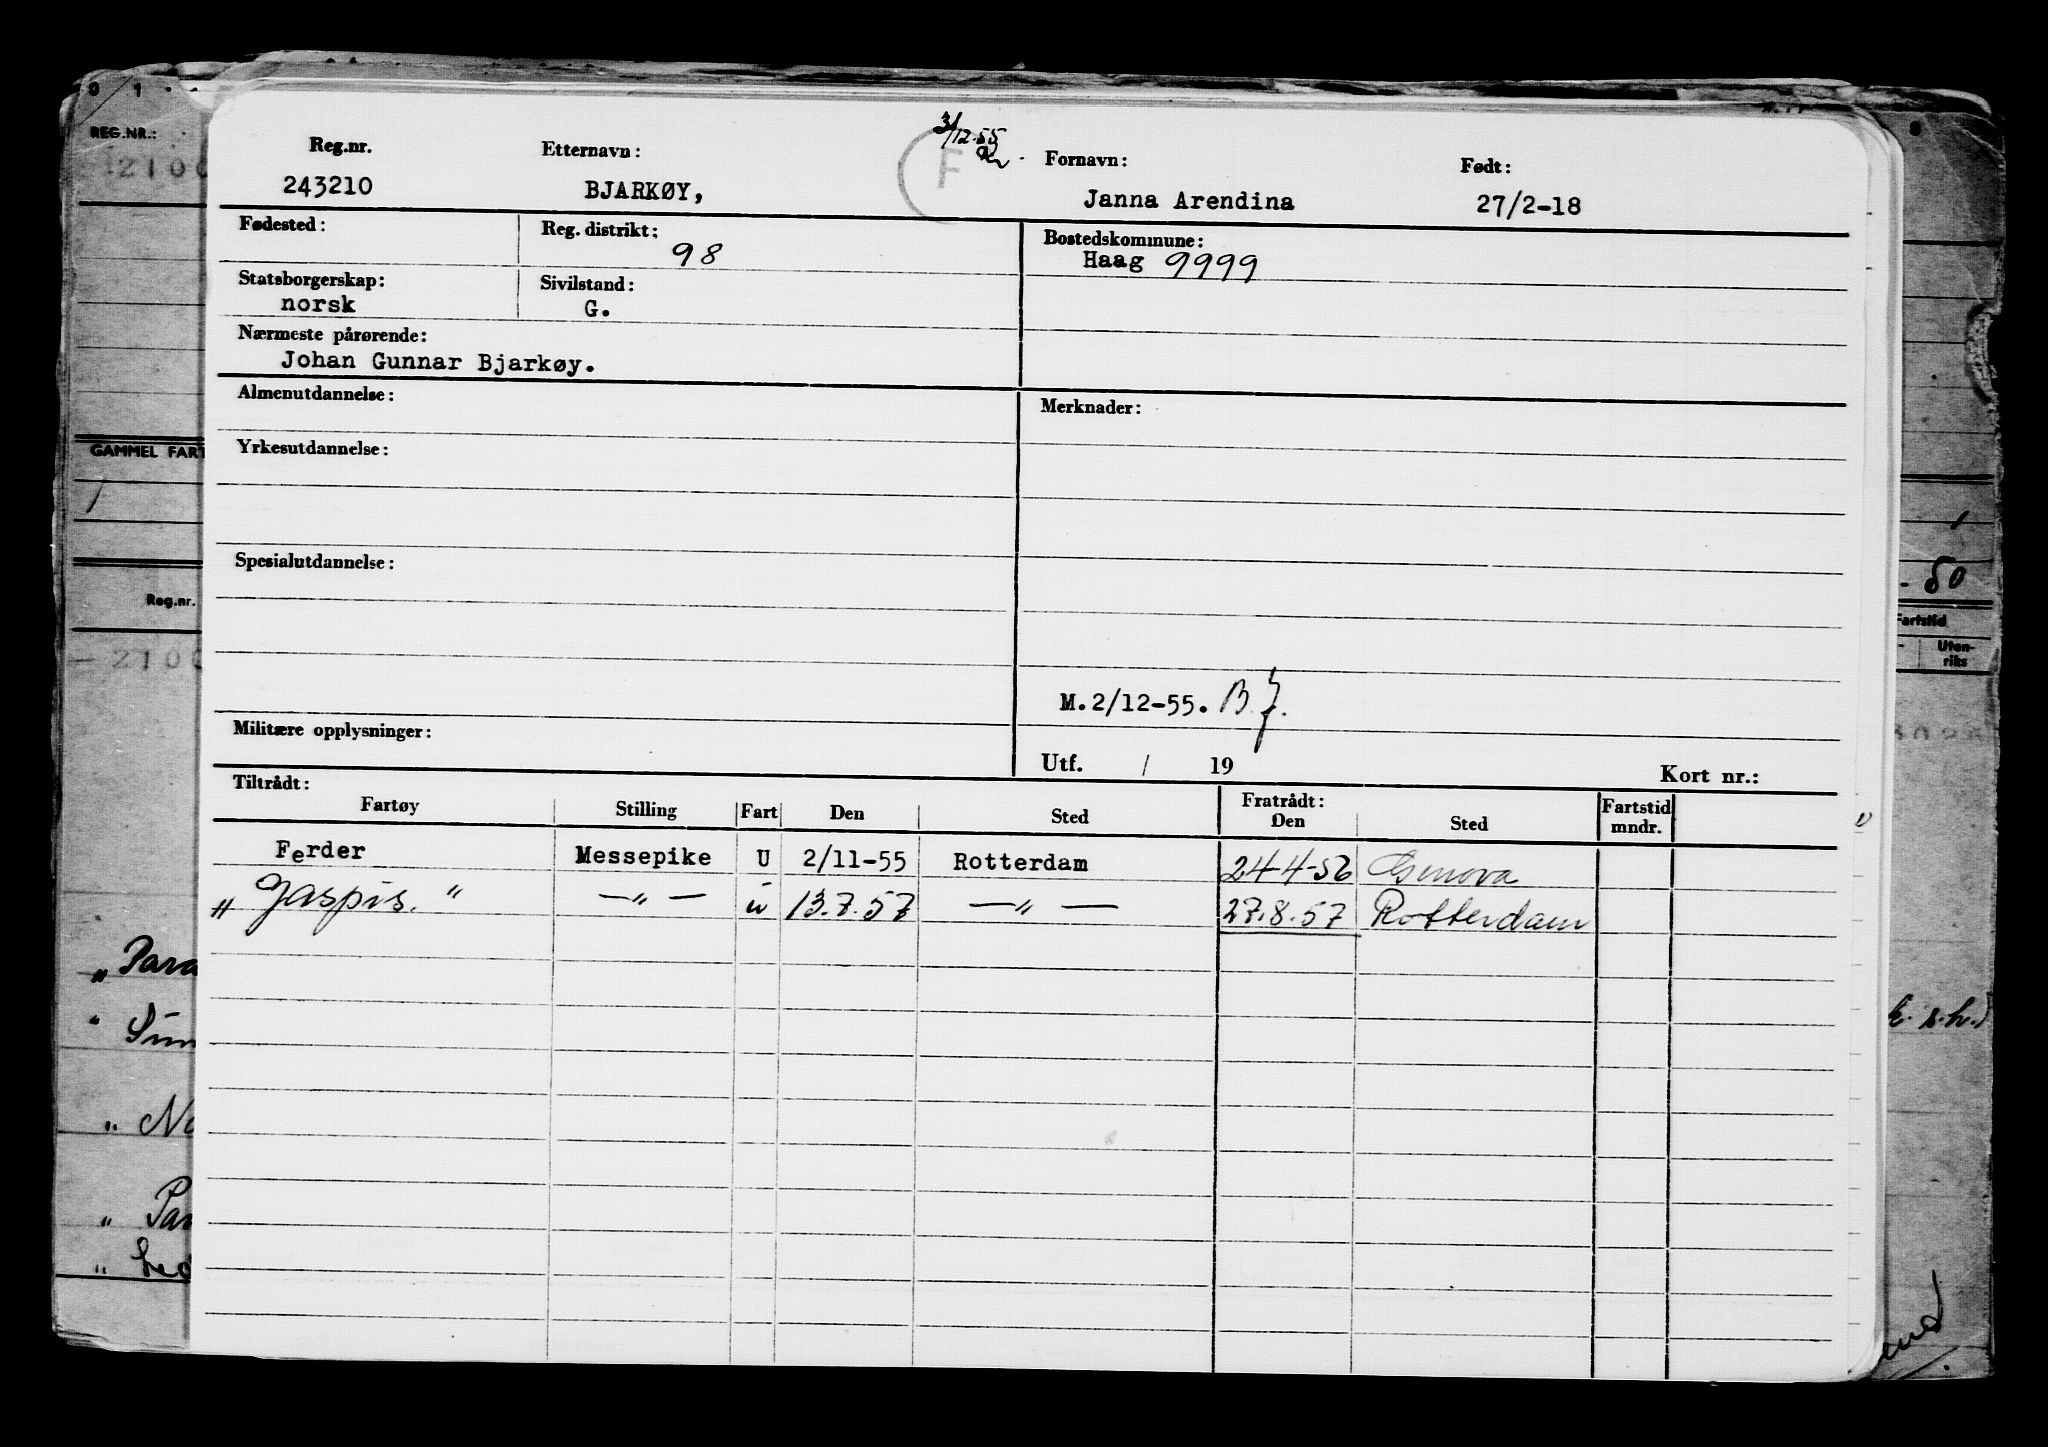 0 1
REG.NR.:
GAMMEL FART
Reg.nr.
3/12-55
F
Reg.nr. Etternavn: Fornavn: Født:
243210 BJARKØY, Janna Arendina 27/2-18
Fødested: Reg. distrikt: Bostedskommune:
98 Haag 9999
Statsborgerskap: Sivilstand:
norsk G.
Nærmeste pårørende:
Johan Gunnar Bjarkøy.
Almenutdannelse: Merknader:
Yrkesutdannelse:
Spesialutdannelse:
M.2/12-55. B.J.
Militære opplysninger:
Utf. / 19 Kort nr.:
Tiltrådt: Fratrådt:
Fartøy Stilling Fart Den Sted Den Sted Fartstid mndr.
Ferder Messepike U 2/11-55 Rotterdam 24-4-56 Genova
„ Jaspis. " —„— u 13.7.57 —„— 27.8.57 Rotterdam
„ Para
" Sun
„ No
„ Par
- 50
Fartstid
Uten-
riks
k. s.h.)